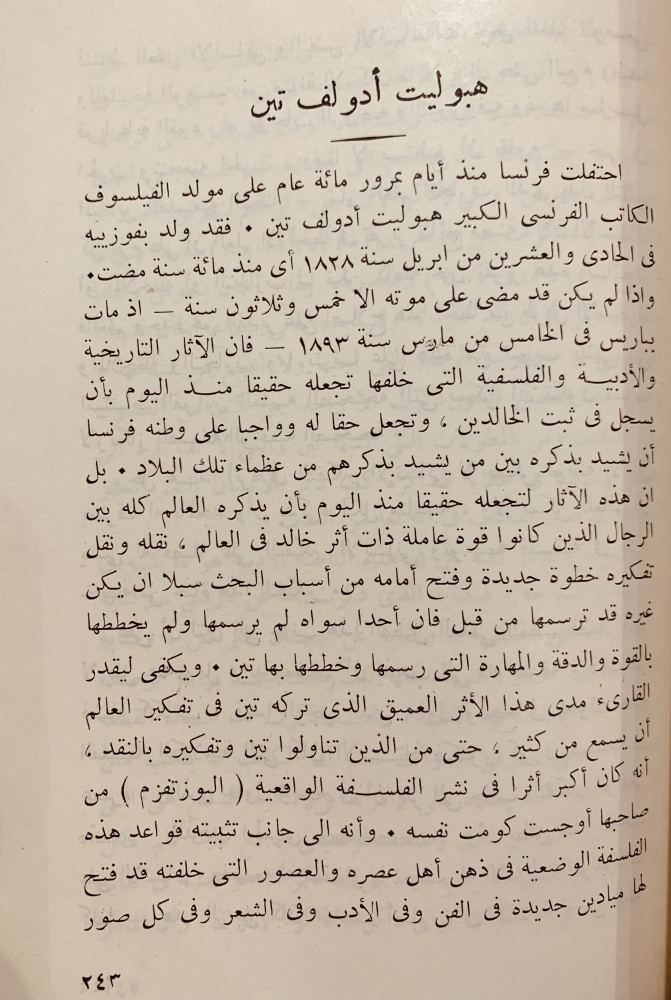 هبوليت أدولف تين
احتفلت فرنسا منذ أيام بمرور مائة عام على مولد الفيلسوف
الكاتب الفرنسى الكبير هبوليت أدولف تين . فقد ولد بفوزييه
فى الحادى والعشرين من ابريل سنة ١٨٢٨ أى منذ مائة سنة مضت .
واذا لم يكن قد مضى على موته الا خمس وثلاثون سنة — اذ مات
بباريس فى الخامس من مارس سنة ١٨٩٣ — فان الآثار التاريخية
والأدبيــة والفلسفية التى خلفها تجعله حقيقا منــذ اليوم بأن
يسجل فى ثبت الخالدين ، وتجعل حقا له وواجبا على وطنه فرنسا
أن يشيد بذكره بين من يشيد بذكرهم من عظماء تلك البلاد . بل
ان هذه الآثار لتجعله حقيقا منذ اليوم بأن يذكره العالم كله بين
الرجال الذين كانوا قوة عاملة ذات أثر خالد فى العالم ، نقله ونقل
تفكيره خطوة جديدة وفتح أمامه من أسباب البحث سبلا ان يكن
غيره قد ترسمها من قبل فان أحدا سواه لم يرسمها ولم يخططها
بالقوة والدقة والمهارة التى رسمها وخططها بها تين . ويكفى ليقدر
القارىء مدى هذا الأثر العميق الذى تركه تين فى تفكير العالم
أن يسمع من كثير ، حتى من الذين تناولوا تين وتفكيره بالنقد ،
أنه كان أكبر أثرا فى نشر الفلســفة الواقعية ( البوزتفزم ) من
صاحبها أوجست كومت نفسه . وأنه الى جانب تثبيته قواعد هذه
الفلسفة الوضعية فى ذهن أهل عصره والعصور التى خلفته قد فتح
لها ميادين جديدة فى الفن وفى الأدب وفى الشعر وفى كل صور
٢٤٣